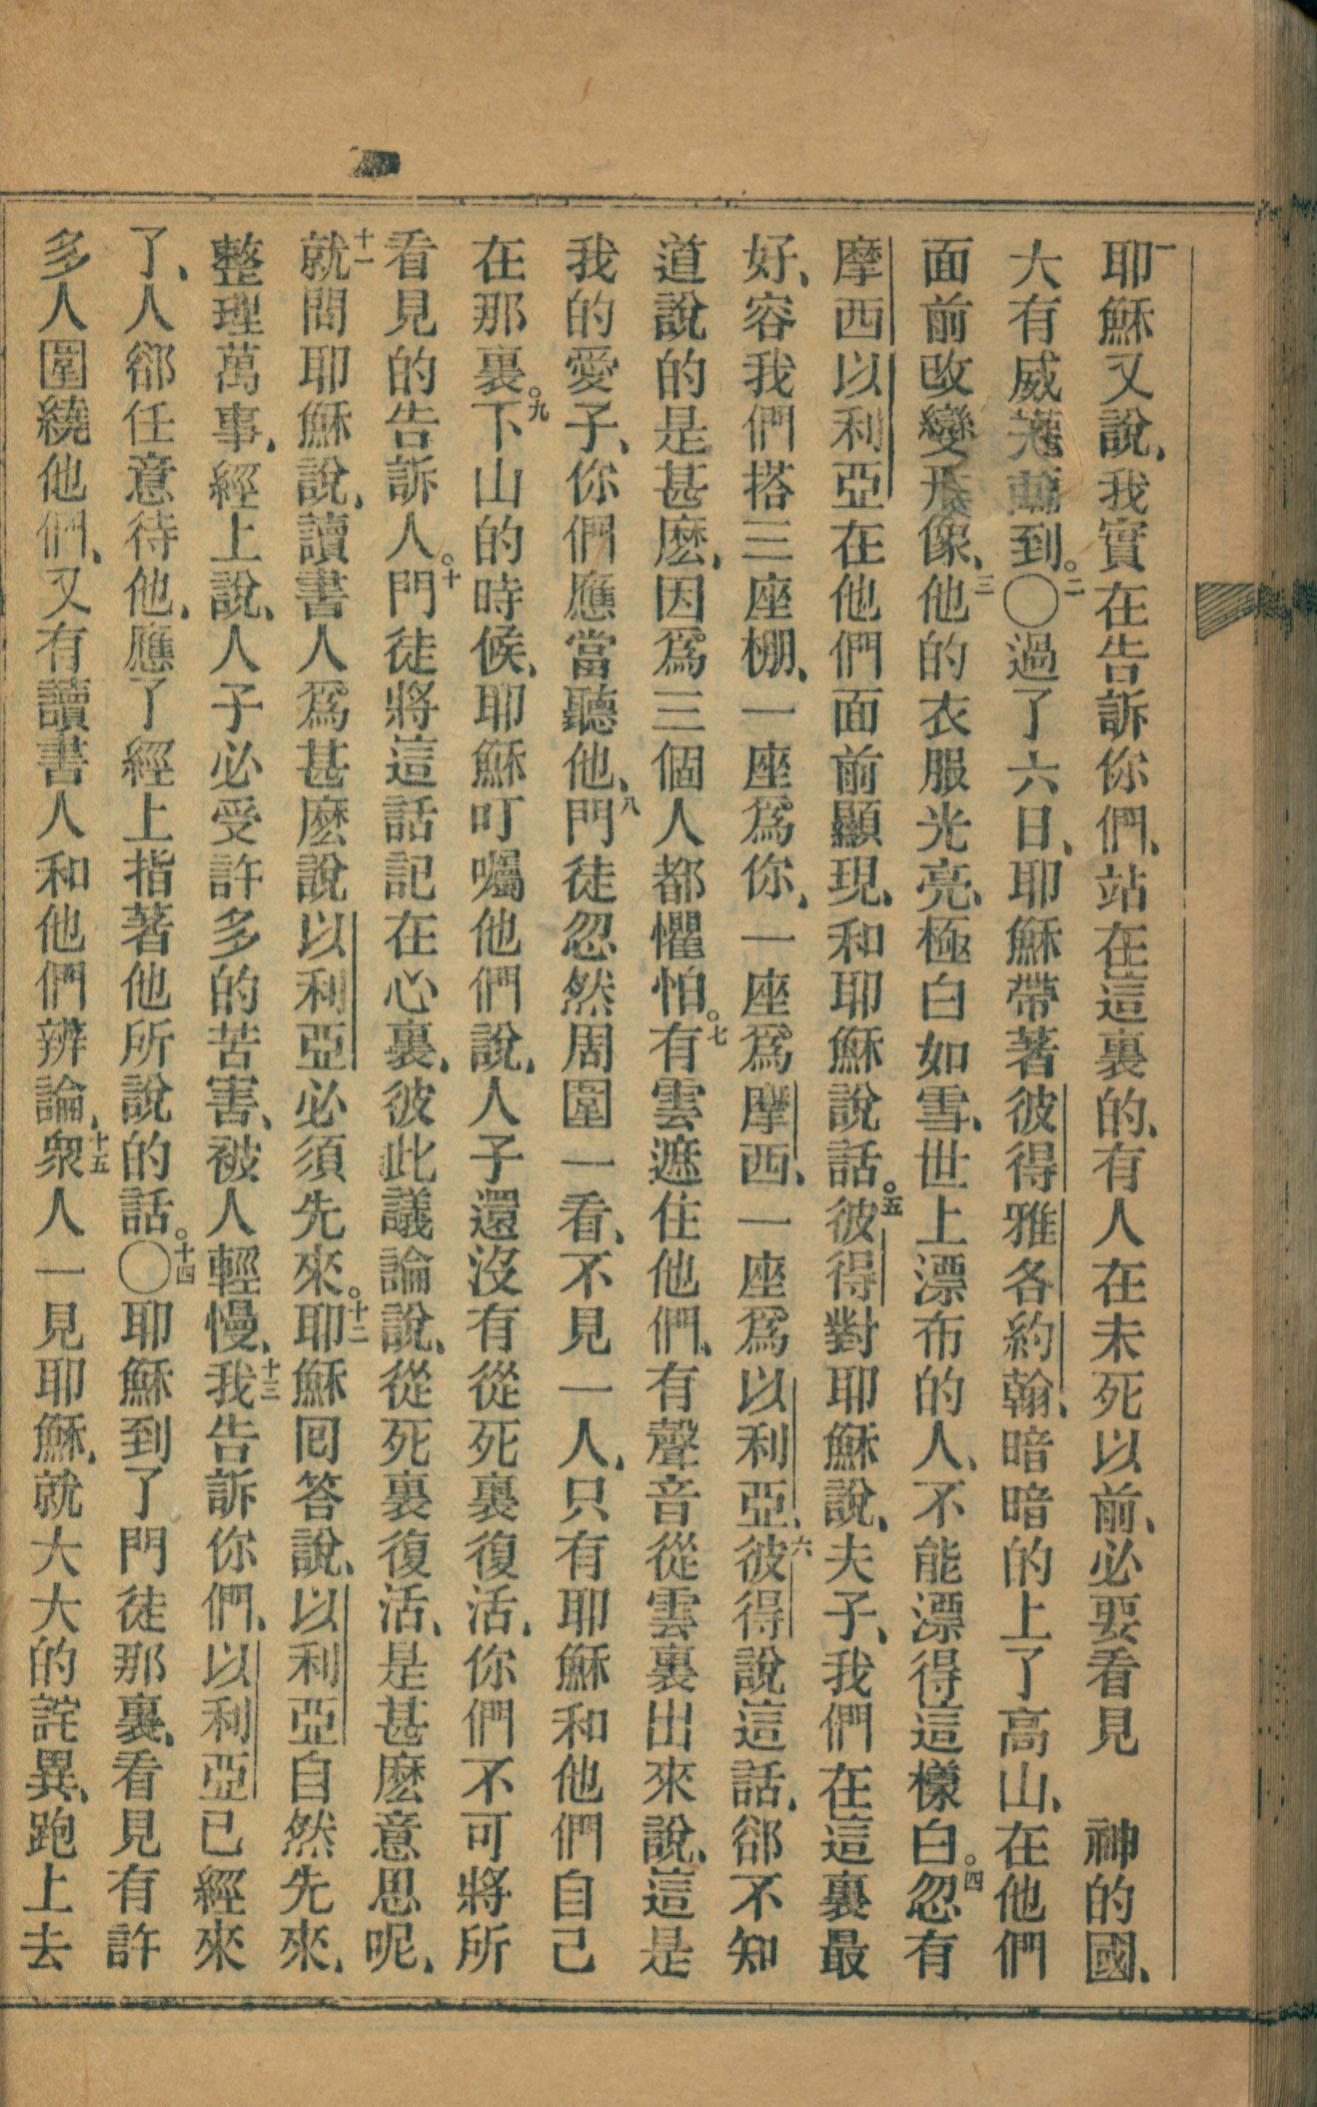 一耶穌又說、我實在告訴你們、站在這裏的、有人在未死以前、必要看見　神的國、
大有威到。二〇過了六日、耶穌帶著彼得雅各約翰、暗暗的上了高山、在他們
面前改變形像、三他的衣服光亮、極白如雪、世上漂布的人、不能漂得這樣白。四忽有
摩西以利亞在他們面前顯現、和耶穌說話。五彼得對耶穌說、夫子、我們在這裏最
好、容我們搭三座棚、一座爲你、一座爲摩西、一座爲以利亞、六彼得說這話、郤不知
道說的是甚麽、因爲三個人都懼怕。七有雲遮住他們、有聲音從雲裏出來說、這是
我的愛子、你們應當聽他、八門徒忽然周圍一看、不見一人、只有耶穌和他們自己
在那裏。九下山的時候、耶穌叮囑他們說、人子還沒有從死裏復活、你們不可將所
看見的告訴人。十門徒將這話記在心裏、彼此議論說、從死裏復活、是甚麽意思呢、
十一就問耶穌說、讀書人爲甚麽說以利亞必須先來。十二耶穌囘答說、以利亞自然先來、
整理萬事、經上說、人子必受許多的苦害、被人輕慢、十三我告訴你們、以利亞已經來
了、人郤任意待他、應了經上指著他所說的話。十四〇耶穌到了門徒那裏、看見有許
多人圍繞他們、又有讀書人和他們辨論、十五衆人一見耶穌、就大大的詫異、跑上去